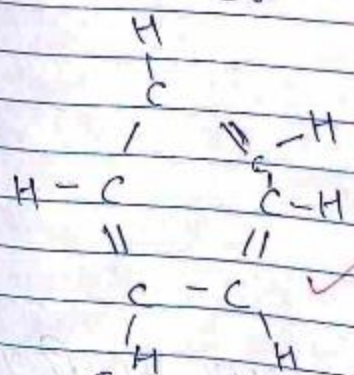 H
C
C - H
H - C C - H
C - C
H H